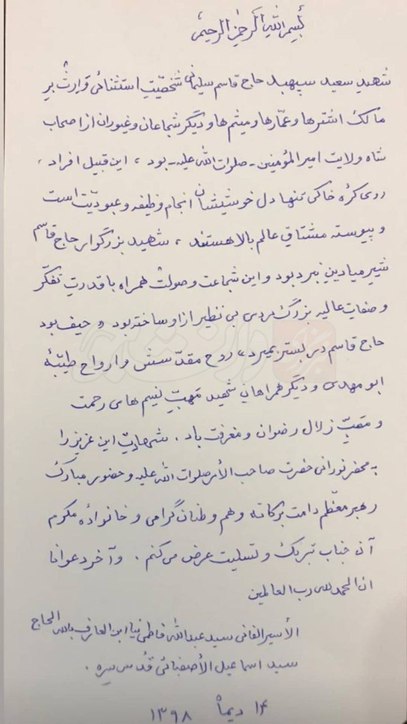 بسم الله الرحمن الرحیم
شهید سعید سپهبد حاج قاسم سلیمانی شخصیّتِ استثنائی و ارث‌بر
مالک اشترها و عمّارها و میثم‌ها و دیگر شجاعان و غیوران از اصحاب
شاه ولایت امیرالمؤمنین - صلوات الله علیه - بود، این قبیل افراد،
روی کره خاکی تنها دل خوشیشان انجام وظیفه و عبودیّت است
و پیوسته مشتاقِ عالم بالا هستند، شهید بزرگوار حاج قاسم
شیر میادین نبرد بود و این شجاعت و صولت همراه با قدرتِ تفکّر
و صفات عالیه بزرگ مردی بی نظیر از او ساخته بود و حیف بود
حاج قاسم در بستر بمیرد، روح مقدّسش و ارواح طیّبهٔ
ابو مهدی و دیگر همراهان شهید مَهبّ نسیم های رحمت
و مَصبّ زلال رضوان و مغفرت باد. شهادتِ این عزیز را
به محضر نورانی حضرت صاحب الأمر صلوات الله علیه و حضور مبارک
رهبر معظّم دامت برکاته و هم وطنان گرامی و خانوادهٔ مکرم
آن جناب تبریک و تسلیت عرض می کنم. و آخر دعوانا
ان الحمد لله رب العالمین
الأسیر الفانی سید عبدالله فاطمی نیا ابن العارف بالله الحاج
سید اسماعیل الأصفیائی قُدّس سره.
۱۴ دیماه ۱۳۹۸